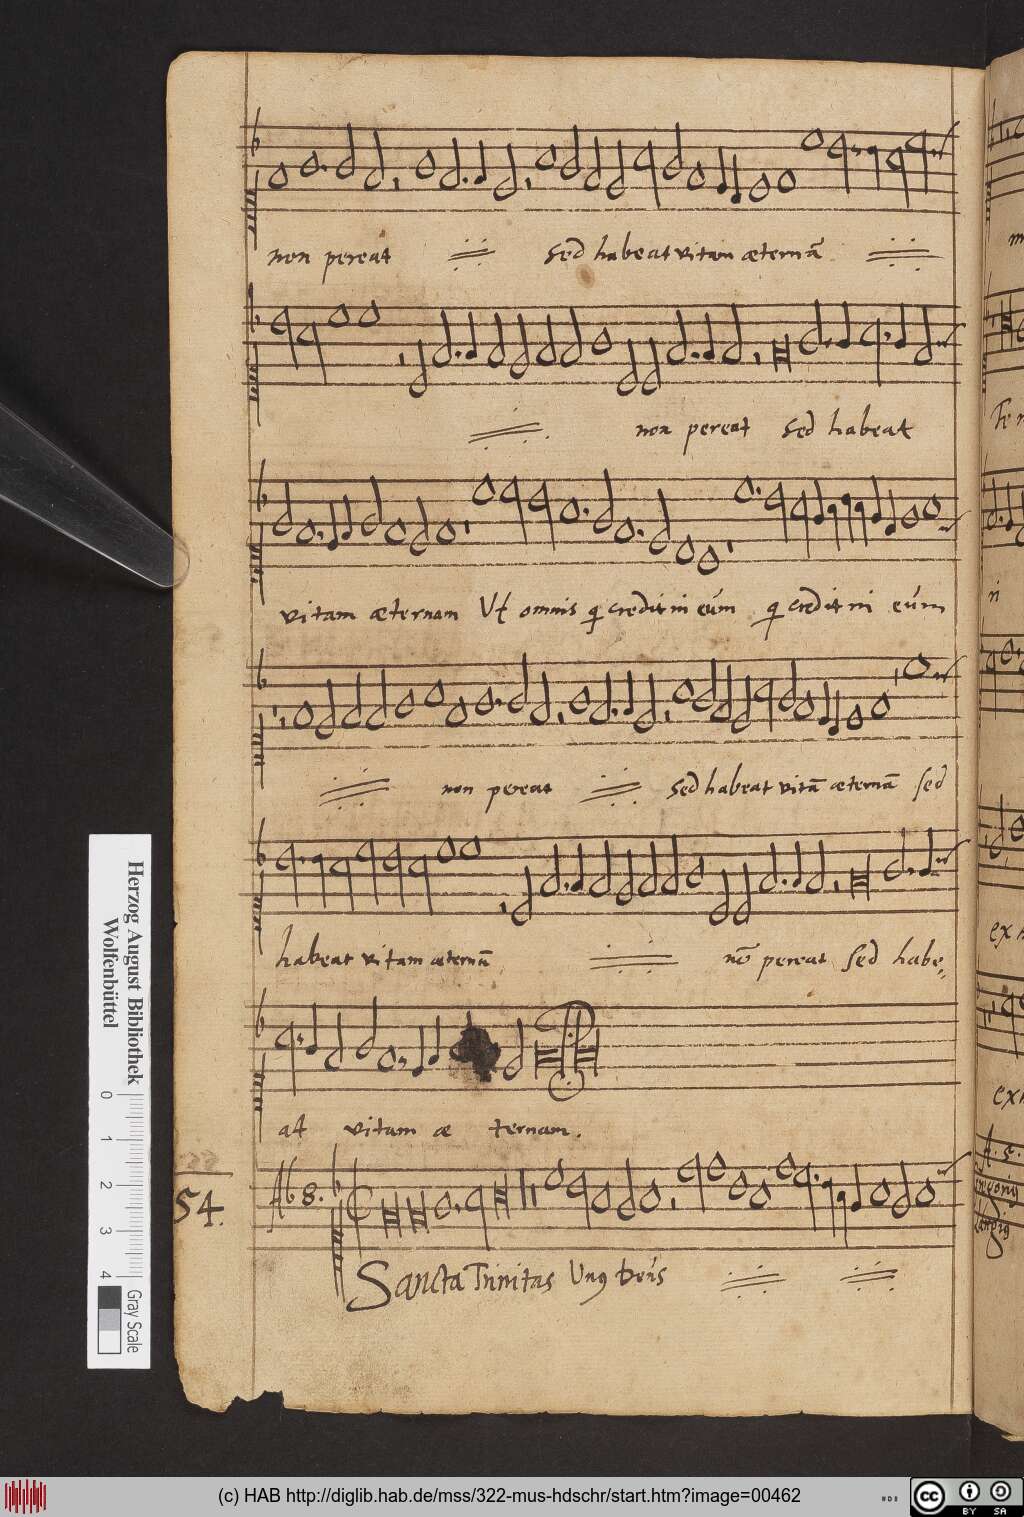 non pereat sed habeat vitam æternā
non pereat sed habeat
vitam æternam Ut omnis qi credit in eum qi credit in eum
non pereat sed habeat vitā æternā sed
habeat vitam æternū nō pereat sed habe„
at vitam æ ternam.
54.
Ab 8.
Sancta Trinitas Unq Deus
Herzog August Bibliothek
Wolfenbüttel
0 1 2 3 4
Gray Scale
(c) HAB http://diglib.hab.de/mss/322-mus-hdschr/start.htm?image=00462
cc BY SA